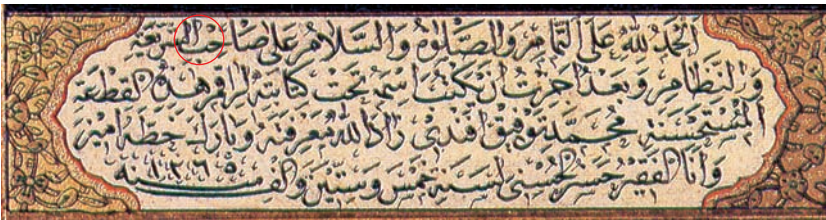 الحمد لله على التمام والصلوة والسلام على صاحب الشريعة
والنظام وبعد اجزت ان يكتب اسمه تحت كتابته لراقم هذه القطعة
المستحسنة محمد توفيق افندى زاد الله معرفته وبارك حظه امين
وانا الفقير حسن الحسنى لسنة خمس وستين والف سنه ١٢٦٥